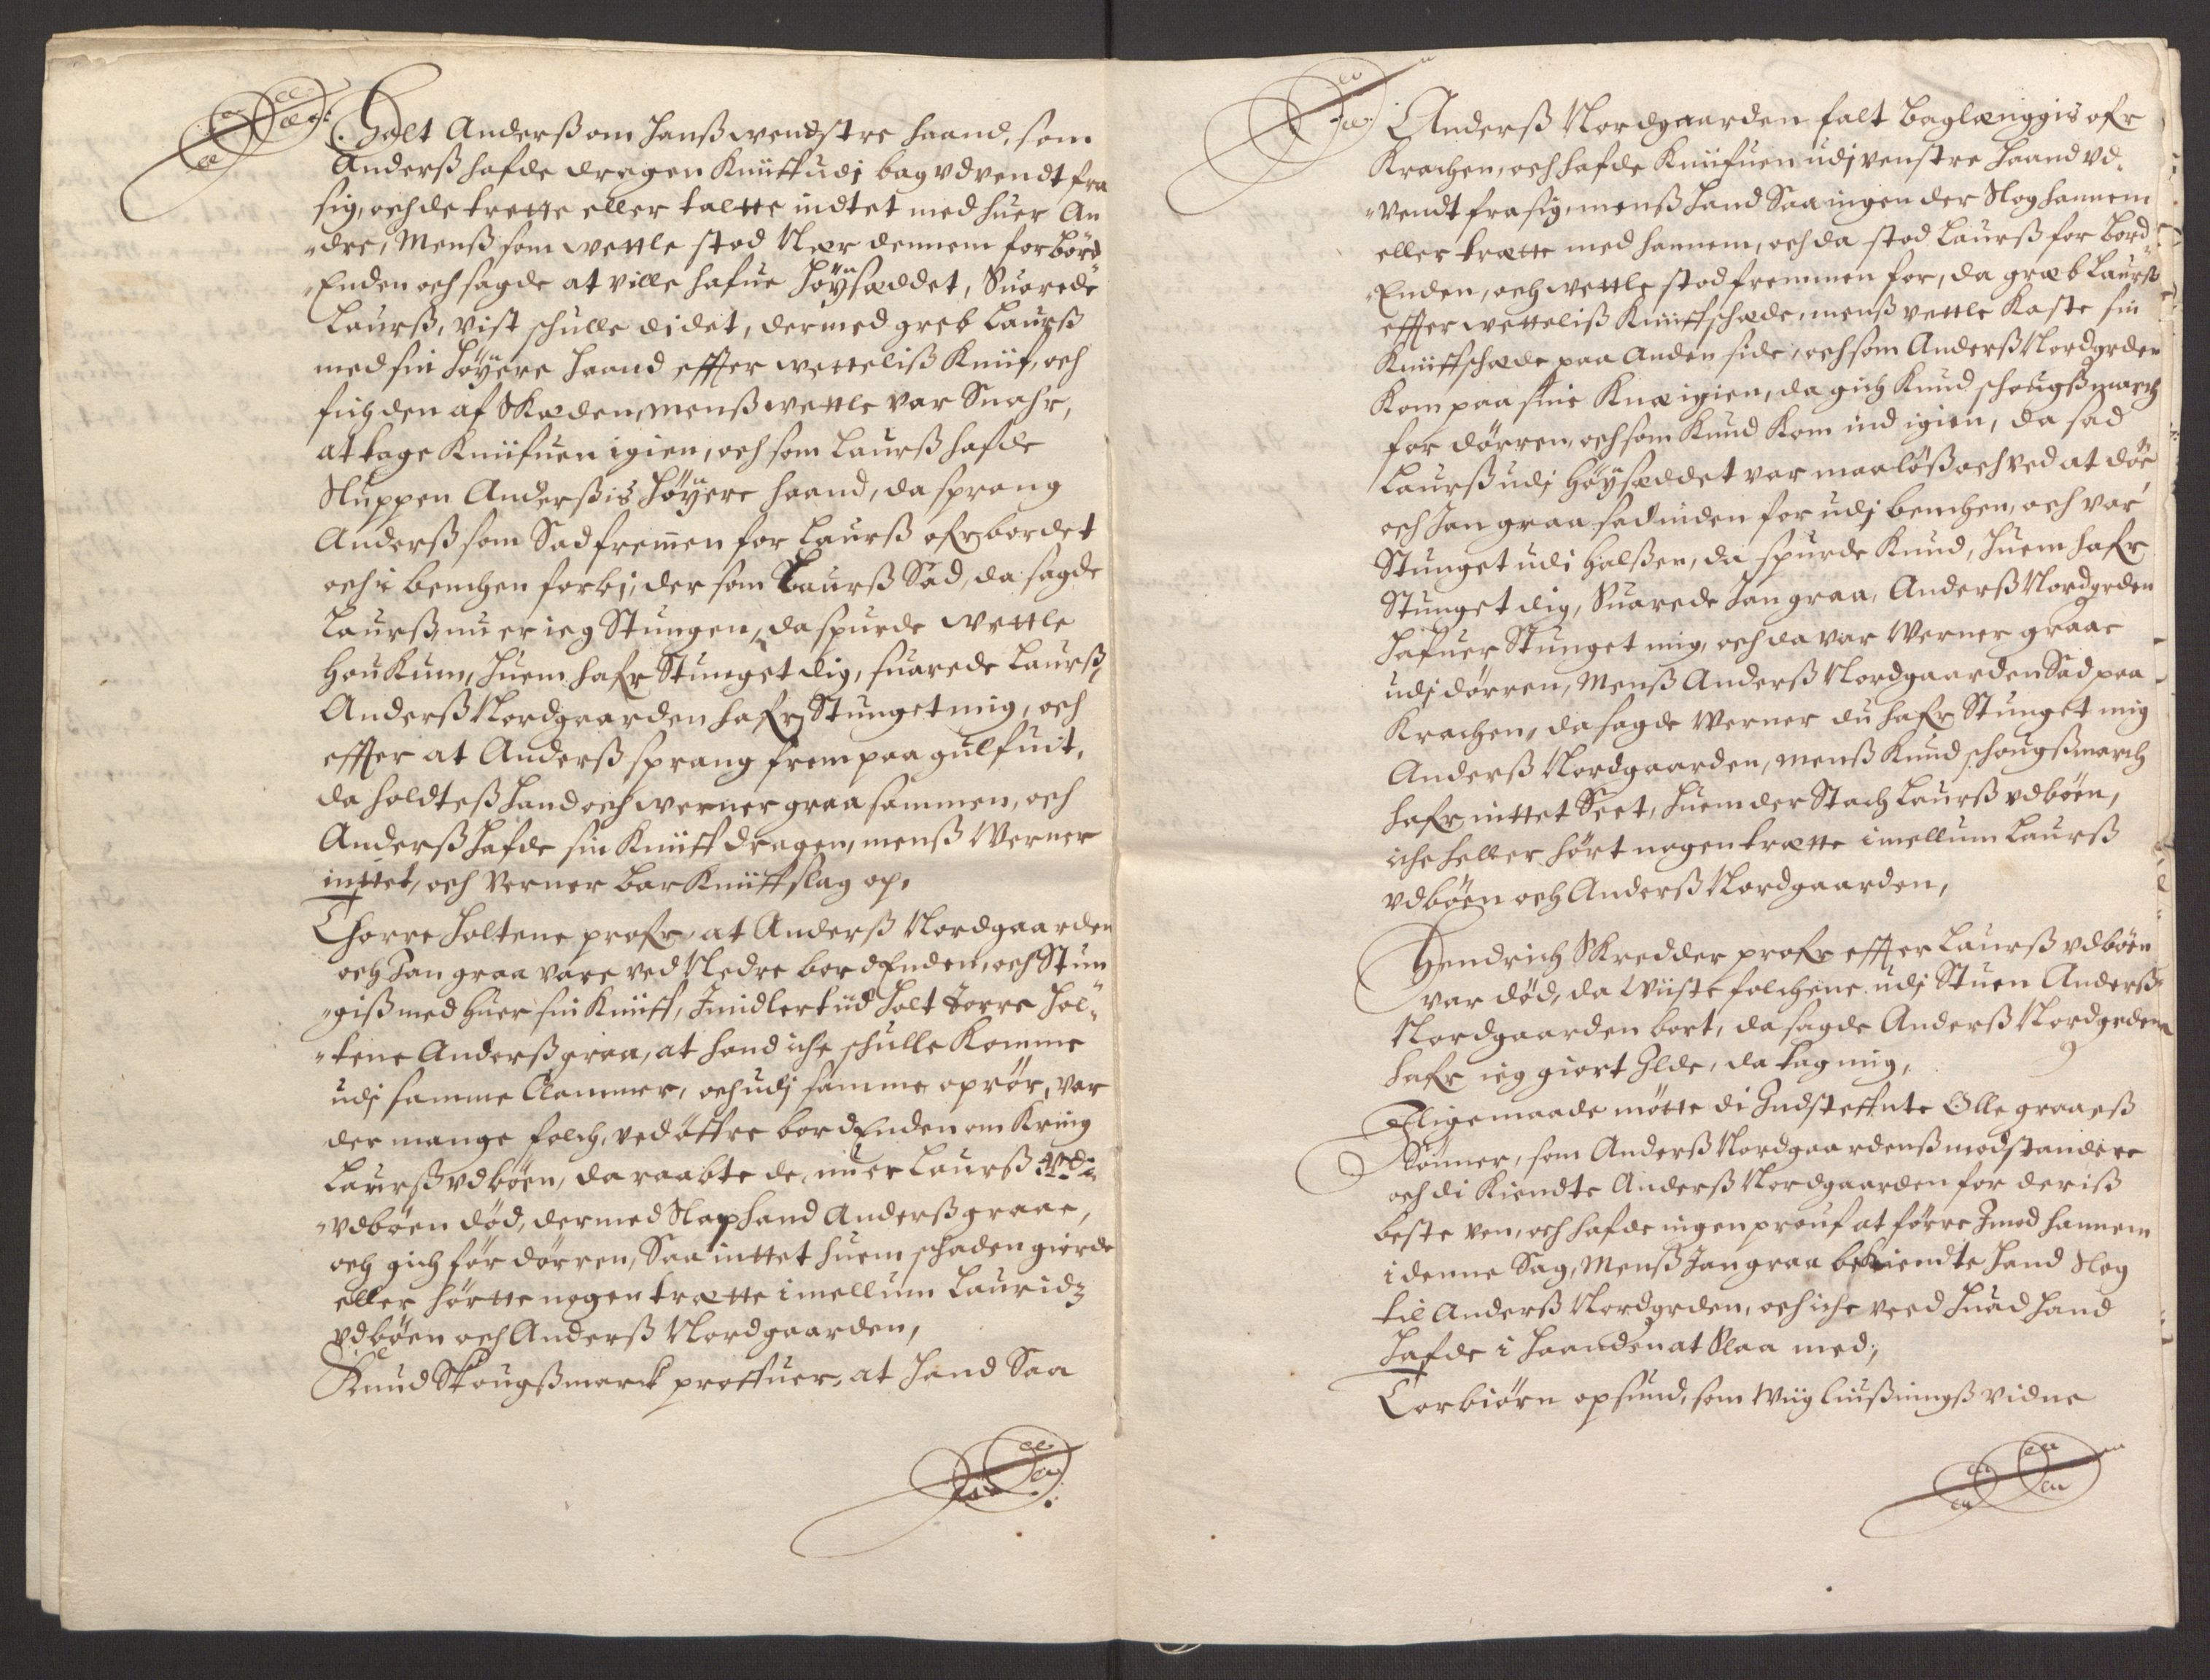 Holt Anderß om hanß wendstre haand, som
Anderß hafde dragen Kniff udj bag udvendt fra
sig, och de trette eller taltte indtet med huer An
dre, Menß som wettle stod Nær dennem for bord
Enden och sagde at ville hafue Höysæddet, Suarede
Laurß, vist schulle di det, dermed greb Laurß
med sin höyere haand effter wetteliß Kniif, och
fich den af Skæden, menß wettle var Snahr,
at tage Kniifuen igien, och som Laurß hafde
Sluppen Anderßis höyere haand, da sprang
Anderß som Sad fremen for Laurß ofr bordet
och i benchen forbj, der som Laurß Sad, da sagde
Laurß nu er ieg Stungen, da spurde wettle
Houkum, huem hafr Stunget dig, suarede Laurß,
Anderß Nordgaarden hafr Stunget mig, och
effter at Anderß sprang frem paa gulfuit,
da holdteß hand och werner graa sammen, och
Anderß hafde sin Kniff dragen, menß Werner
inttet, och Verner bar Kniffslag op,
Thorre holtene profr, at Anderß Nordgaarden
och Jan graa vare ved Nedre bordEnden, och Stun
giß med huer sin Kniff, Imidlertiid holt Torre hol
tene Anderß graa, at hand iche schulle Komme
udj samme Clammer, och udj samme oprör, var
der mange folch, ved öffre bordEnden om Kring
Laurß vdböen, da raabte de, nu er Laurß
vdböen död, dermed Slap hand Anderß graae,
och gich för dörren, Saa inttet huem schaden gierde
eller hörtte nogen trætte imellum Lauridz
vdböen och Anderß Nordgaarden,
Knud Skougßmarck proffuer, at hand Saa
Anderß Nordgaarden falt baglænggis ofr
Krachen, och hafde Kniifuen udj venstre haand vd
vendt fra sig, menß hand Saa ingen der Slog hannem
eller trætte med hannem, och da stod Laurß for bord
Enden, och wettle stod fremmen for, da græb Laurß
effter wetteliß Kniffschæde, menß vettle Kaste sin
Kniffschæde paa anden side, och som Anderß Nordgrden
Kom paa sine Knæ igien, da gich Knud schougßmarch
for dörren, och som Knud Kom ind igien, da sad
Laurß udj Höysæddet var maalöß och ved at döe
och Jan graa sad inden for udj benchen, och var
Stunget udi halßen, da spurde Knud, huem hafr
Stunget dig, Suarede Jan graa, Anderß Nordgrden
hafuer Stunget mig, och da var Werner graae
udj dörren, Menß Anderß Nordgaarden Sad paa
Krachen, da sagde Werner du hafr Stunget mig
Anderß Nordgaarden, menß Knud schougßmarch
hafr inttet Seet, huem der Stach Laurß vdböen,
iche heller hört nogen trætte imellum Laurß
vdböen och Anderß Nordgaarden,
Hendrich Skredder profr effter Laurß vdböen
var död, da Wiiste folchene udj Stuen Anderß
Nordgaarden bort, da sagde Anderß Nordgrden
hafr ieg giort Ilde, da tag mig,
Eligemaade mötte di Indsteffnte Olle graaeß
Sönner, som Anderß Nordgaardenß modstandere
och di Kiendte Anderß Nordgaarden for deriß
beste ven, och hafde ingen prouf at förre Imod hannem
i denne Sag, Menß Jan graa bekiendte hand Slog
til Anderß Nordgrden, och iche veed huad hand
hafde i haanden at Slaa med,
Torbiörn opsund, som Wiigliußningß vidne